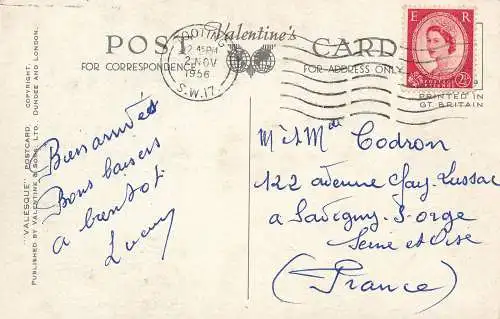 "VALESQUE" POSTCARD. COPYRIGHT.
PUBLISHED BY VALENTINE & SONS, LTD. DUNDEE AND LONDON.
POST
FOR CORRESPONDENCE
Valentine's
CARD
FOR ADDRESS ONLY
TOOTING
12.45PM
2 NOV
1956
S.W.17.
E R
2½D
PRINTED IN
GT BRITAIN
Bien arrivés
Bons baisers
a bientot
M. & Mde Codron
122 avenue Gay-Lussac
a Savigny-S-orge
Seine et Oise
(France)